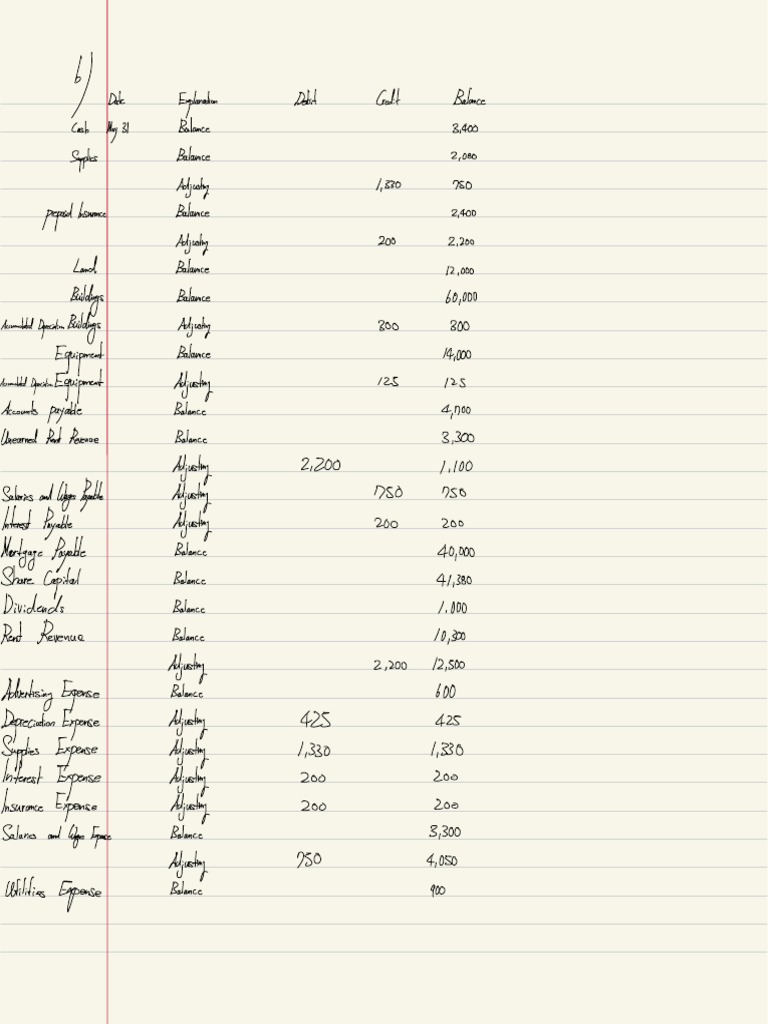 b)
Date Explanation Debit Credit Balance
Cash May 31 Balance 3,400
Supplies Balance 2,080
Adjusting 1,330 750
prepaid Insurance Balance 2,400
Adjusting 200 2,200
Land Balance 12,000
Buildings Balance 60,000
Accumulated Depreciation Buildings Adjusting 300 300
Equipment Balance 14,000
Accumulated Depreciation Equipment Adjusting 125 125
Accounts payable Balance 4,700
Unearned Rent Revenue Balance 3,300
Adjusting 2,200 1,100
Salaries and Wages Payable Adjusting 750 750
Interest Payable Adjusting 200 200
Mortgage Payable Balance 40,000
Share Capital Balance 41,380
Dividends Balance 1,000
Rent Revenue Balance 10,300
Adjusting 2,200 12,500
Advertising Expense Balance 600
Depreciation Expense Adjusting 425 425
Supplies Expense Adjusting 1,330 1,330
Interest Expense Adjusting 200 200
Insurance Expense Adjusting 200 200
Salaries and Wages Expense Balance 3,300
Adjusting 750 4,050
Utilities Expense Balance 900